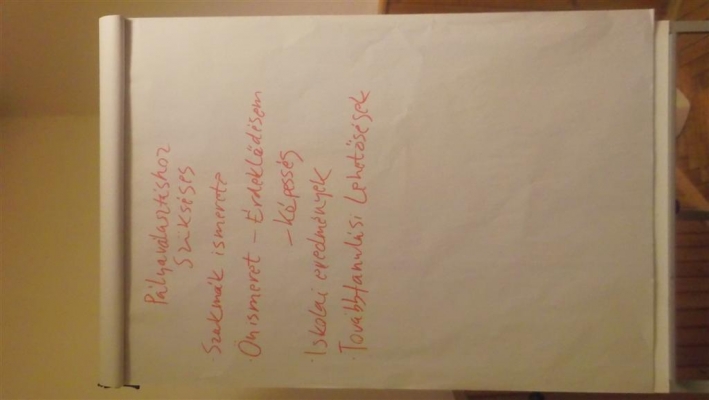 Pályaválasztáshoz
Szükséges
· Szakmák ismerete
· Önismeret - Érdeklődésem
- Képesség
· Iskolai eredmények
· Továbbtanulási Lehetőségek